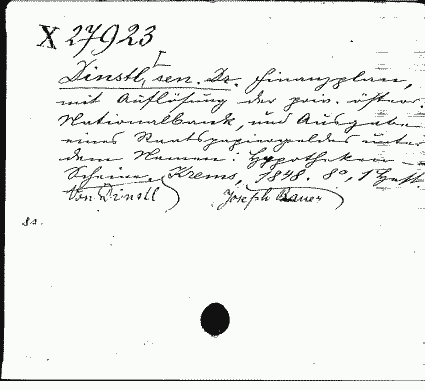 X 27923
Dinstl, sen. Dr. Finanzplan,
mit Auflösung der priv. österr.
Nationalbank, und Ausgabe
eines Staatspapiergeldes unter
dem Namen: Hypotheken-
Scheine. Krems, 1848. 8°, 1 Heft.
Von Dinstl) Joseph Bauer)